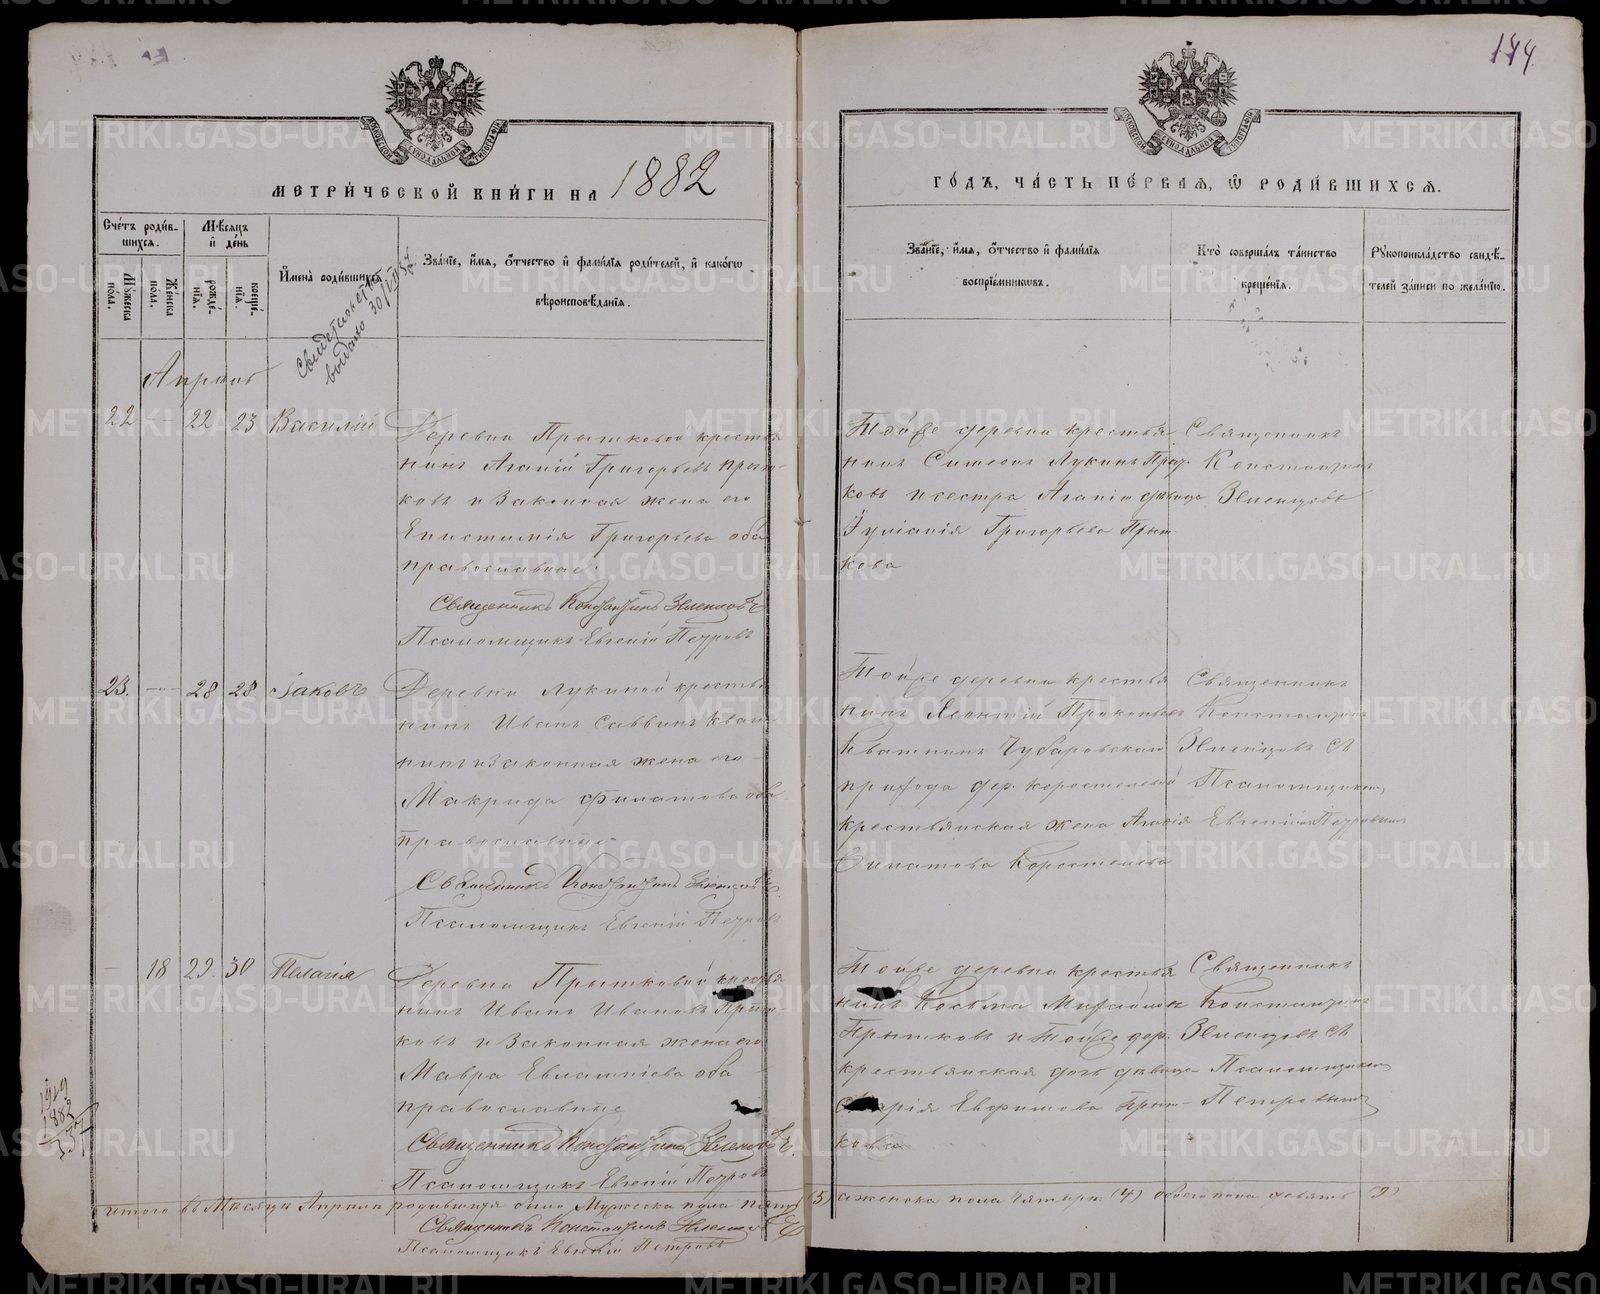 174
МЕТРИЧЕСКОЙ КНИГИ НА 1882
ГОДЪ, ЧАСТЬ ПЕРВАЯ, Ѡ РОДИВШИХСЯ.
Счетъ родив-
шихся.
Мужеска пола.
Женска пола.
Мѣсяцъ и день
рожде-
нія.
креще-
нія.
Имена родившихся.
Званіе, имя, отчество и фамилія родителей, и какогѡ
вѣроисповѣданія.
Званіе, имя, отчество и фамилія
воспріемниковъ.
Кто совершалъ таинство
крещенія.
Рукоприкладство свидѣ-
телей записи по желанію.
Свидетельство
выдано
Апрель
22 22 23 Василій
Деревни Прытковой крестья
нинъ Агапій Григорьевъ Прыт-
ковъ и законная жена его
Епистимія Григорьева оба
православные.
Священникъ Константинъ
Псаломщикъ Евгеній Петровъ
Той же деревни крестья
нинъ Симеонъ Лукинъ Прыт-
ковъ и сестра Агапія девица
Іуліанія Григорьева Прыт
кова
Священникъ
Константинъ
23. 28 28 Іаковъ
Деревни Лукиной крестья
нинъ Иванъ Саввинъ Кваш
нинъ и законная жена его
Макрида Филатова оба
православные
Священникъ Константинъ
Псаломщикъ Евгеній Петровъ
Той же деревни крестья
нинъ Леонтій Прокопьевъ
Квашнинъ Чубаровскаго
прихода дер. Коростелевой
крестьянская жена Агафія
Филатова Коростелева
Священникъ
Константинъ
съ
Псаломщикомъ
Евгеніемъ Петровымъ
18 29. 30 Пелагія
Деревни Прытковой крестья
нинъ Иванъ Ивановъ Прыт-
ковъ и законная жена его
Мавра Евлампіева оба
православные
Священникъ Константинъ
Псаломщикъ Евгеній Петровъ
Той же деревни крестья
нинъ Косьма Михайловъ
Прытковъ и той же дер.
крестьянская дочь девица
Марія Евфимова Прыт-
кова
Священникъ
Константинъ
съ
Псаломщикомъ
Петровымъ
1919
1882
37
Итого въ Месяце Апреле родившихся было Мужеска пола пять (5) а женска пола четыре (4) обоего пола девять (9)
Священникъ Константинъ
Псаломщикъ Евгеній Петровъ
METRIKI.GASO-URAL.RU